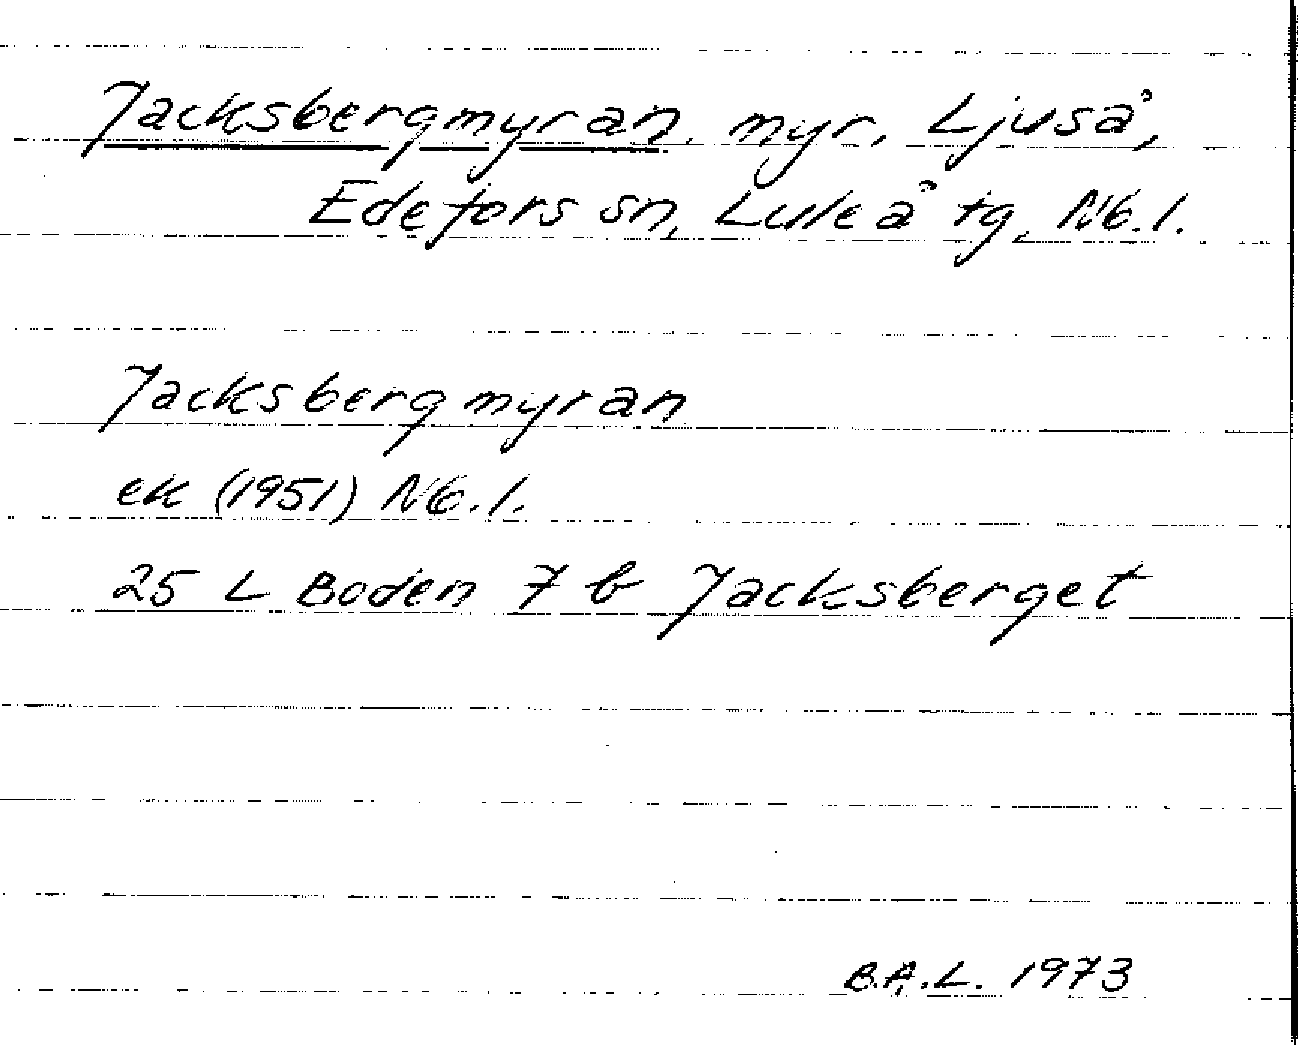 Jacksbergmyran, myr, Ljuså,
Edefors sn, Luleå tg, Nb. l.
Jacksbergmyran
ek (1951) Nb. l.
25 L Boden 7 b Jacksberget
B.A.L. 1973